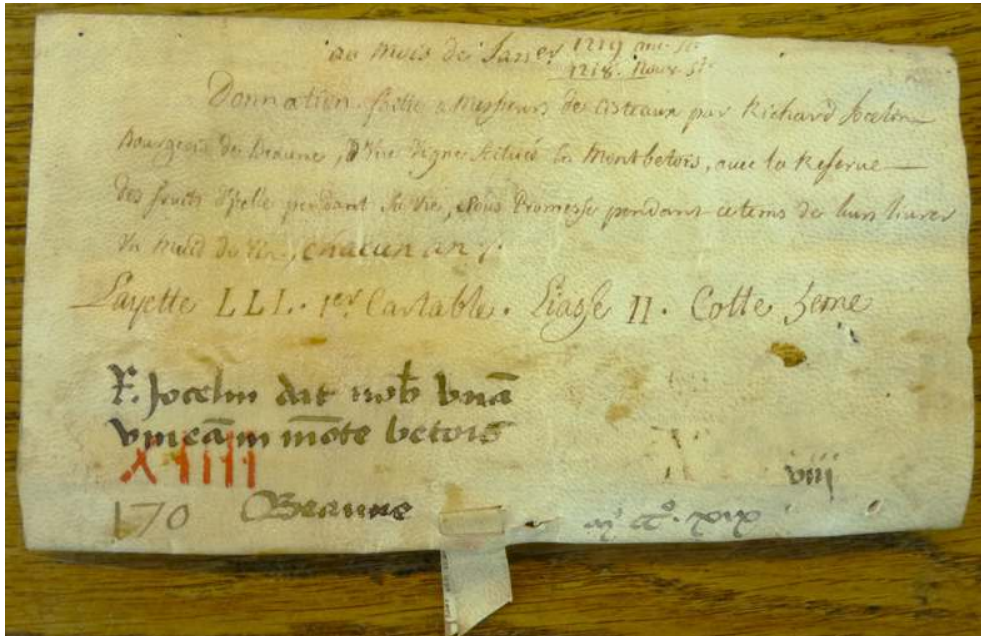 au mois de Janer 1219 anc. st.
1218. Nouv. st.
Donnation faitte a Messieurs de Cisteaux par Richard Jocelin
Bourgeois de Beaune, d'Une Vigne scituée en Montbetois, avec la Reserve
des fruits d'jcelle pendant sa Vie, sous Promesse pendant ce tems de leurs livrer
Un muid de Vin, chacun an
Layette LLL. 1er. Cartable. Liasse II. Cotte 5eme
R. Jocelin dat nob unā
vineā in mōte betois
XIIII
viij
170 Beaune mº ccº. xix